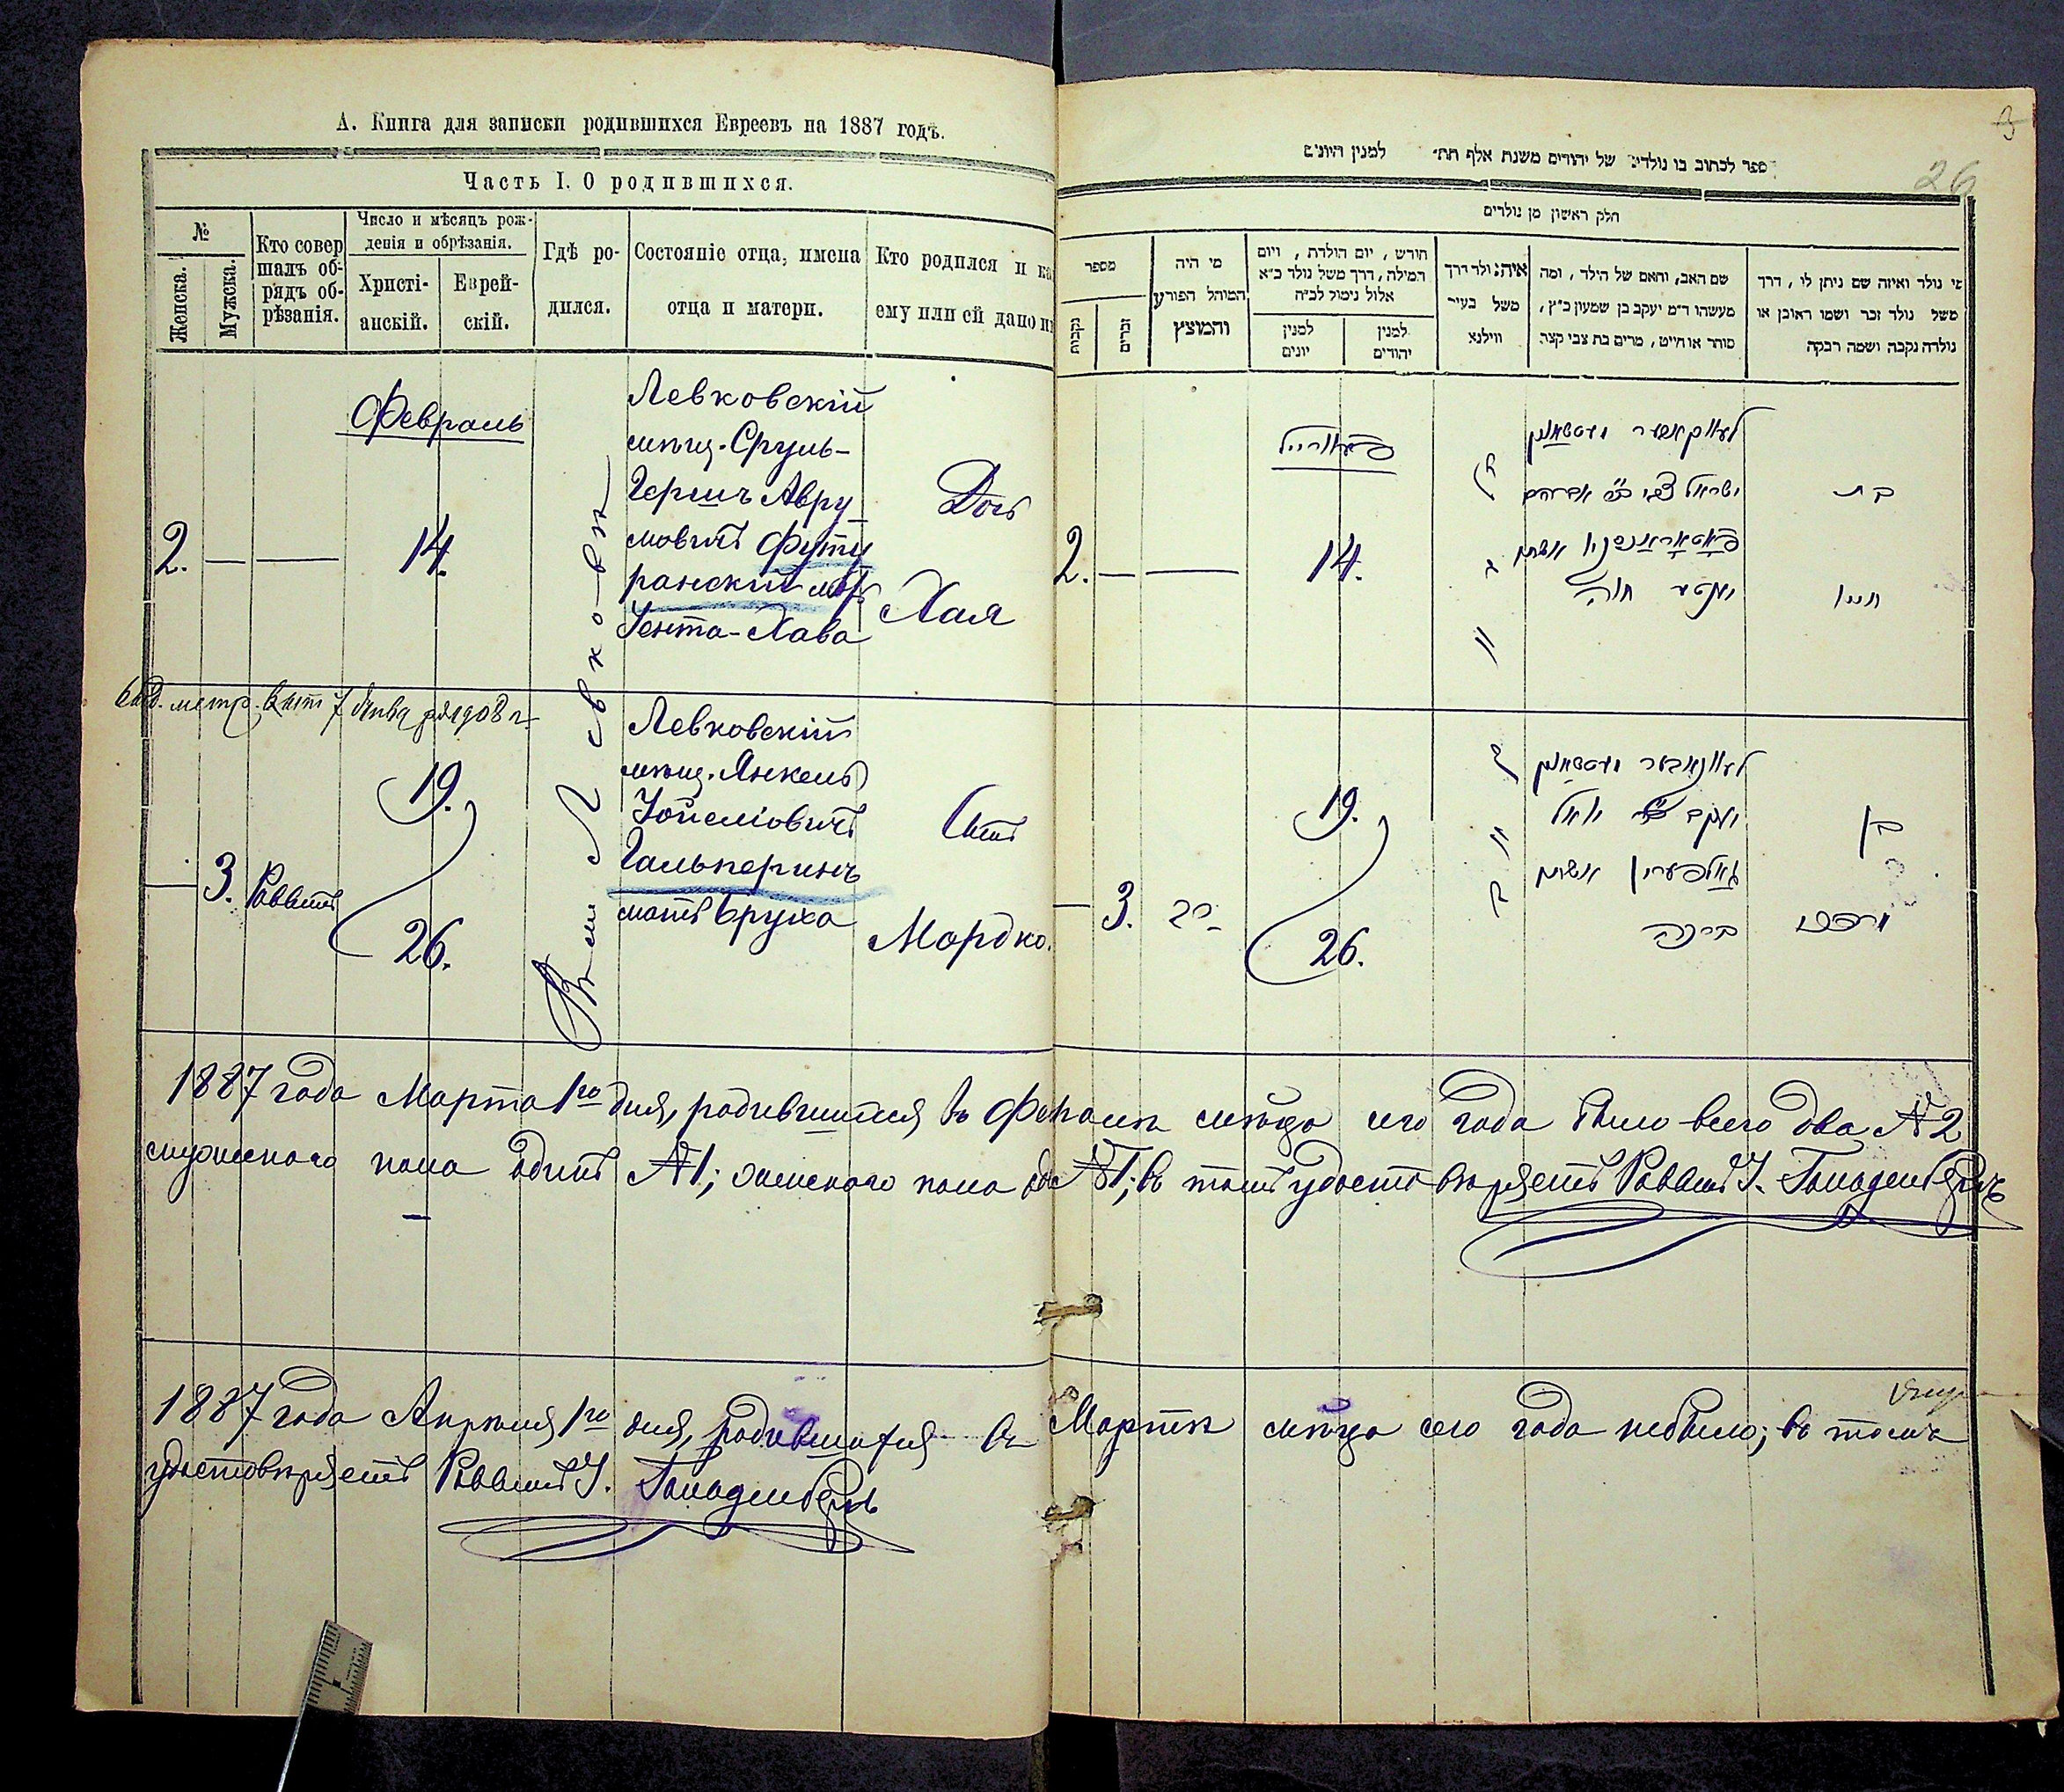 А. Книга для записки родившихся Евреевъ на 1887 годъ.
Часть I. О родившихся.
№
Женска.
Мужска.
Кто совер
шалъ об-
рядъ об-
рѣзанія.
Число и мѣсяцъ рож-
денія и обрѣзанія.
Христі-
анскій.
Еврей-
скій.
Гдѣ ро-
дился.
Состояніе отца, имена
отца и матери.
Кто родился и ка
ему или ей дано и
Февраль
2. — — 14.
Левковскій
мѣщ. Сруль-
Гершъ Авру
мовичъ Футу
ранскій
Хава
Дочь
Хая
Въ м Левковѣ
— 3. Раввинъ
19.
26.
Левковскій
мѣщ. Янкель
Гальперинъ
мать Бруха
Сынъ
Мордко.
3
26
ספר לכתוב בו נולדים של יהודים משנת אלף תת׳ למנין היונים
חלק ראשון מן נולדים
מספר
נקבות
זכרים
מי היה
המוהל הפורע
והמוצץ
חורש, יום הולדת, ויום
המילה, דרך משל נולד כ״א
אלול נימול לכ״ה
למנין
יונים
למנין
יהודים
איה נולד דרך
משל בעיר
ווילנא
שם האב, והאם של הילד, ומה
מעשהו ד״מ יעקב בן שמעון כ״ץ,
סוחר או חייט, מרים בת צבי קצב
מי נולד ואיזה שם ניתן לו, דרך
משל נולד זכר ושמו ראובן או
נולדה נקבה ושמה רבקה
2. — — 14.
ישראל צבי אברהם
יענטע חוה
בת
— 3. רב
19.
26.
יעקב יואל
גאלפערין
ברוכה
בן
1887 года Марта 1го дня, родившихся въ Февралѣ мѣсяца сего года было всего два №2
мужеского пола одинъ №1; женского пола №1; въ томъ удостовѣряетъ Раввинъ
1887 года Апрѣля 1го дня, родившихся въ Мартѣ мѣсяца сего года небыло; въ томъ
удостовѣряетъ Раввинъ